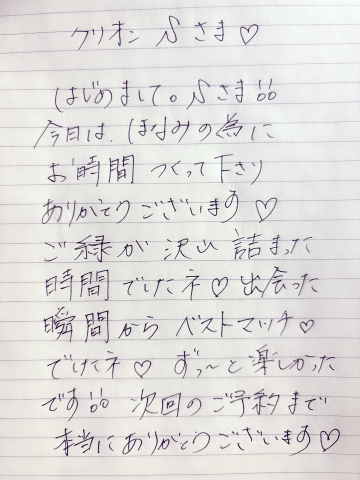 クリオン Sさま♡
はじめまして。Sさま!!
今日は、ほなみの為に
お時間 つくって下さり
ありがとうございます♡
ご縁が 沢山 詰まった
時間でしたネ♡ 出会った
瞬間から ベストマッチ♡
でしたネ♡ ずっ〜と楽しかった
です!! 次回のご予約まで
本当にありがとうございます♡